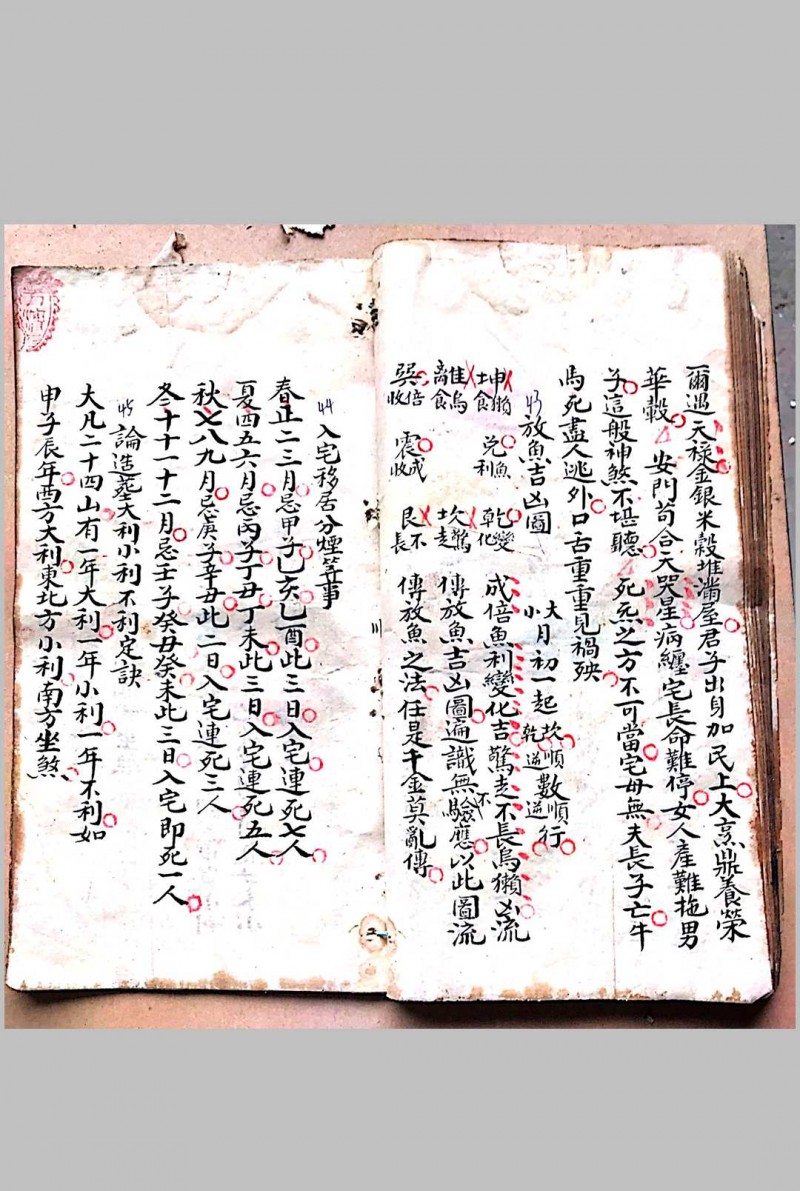 爾遇天祿金銀米穀堆滿屋君子出身加民上大烹鼎養榮
華穀安門苟合天哭星病纏宅長命難停女人產難拖男
子這般神煞不堪聽死炁之方不可當宅母無夫長子亡牛
馬死盡人逃外口舌重重見禍殃
43 放魚吉凶圖
大月初一起坎順數順行
小 乾逆 逆
坤獺食 兌魚利 乾變化
離烏食 坎驚走
巽倍收 震成收 艮不長
成倍魚利變化吉驚走不長烏獺凶流
傳放魚吉凶圖遍識無不驗應以此圖流
傳放魚之法任是千金莫亂傳
44 入宅移居分煙等事
春正二三月忌甲子乙亥乙酉此三日入宅連死七人
夏四五六月忌丙子丁丑丁未此三日入宅連死五人
秋七八九月忌庚子辛丑此二日入宅連死三人
冬十十一十二月忌壬子癸丑癸未此三日入宅即死一人
45 論造塟大利小利不利定訣
大凡二十四山有一年大利一年小利一年不利如
申子辰年西方大利東北方小利南方坐煞